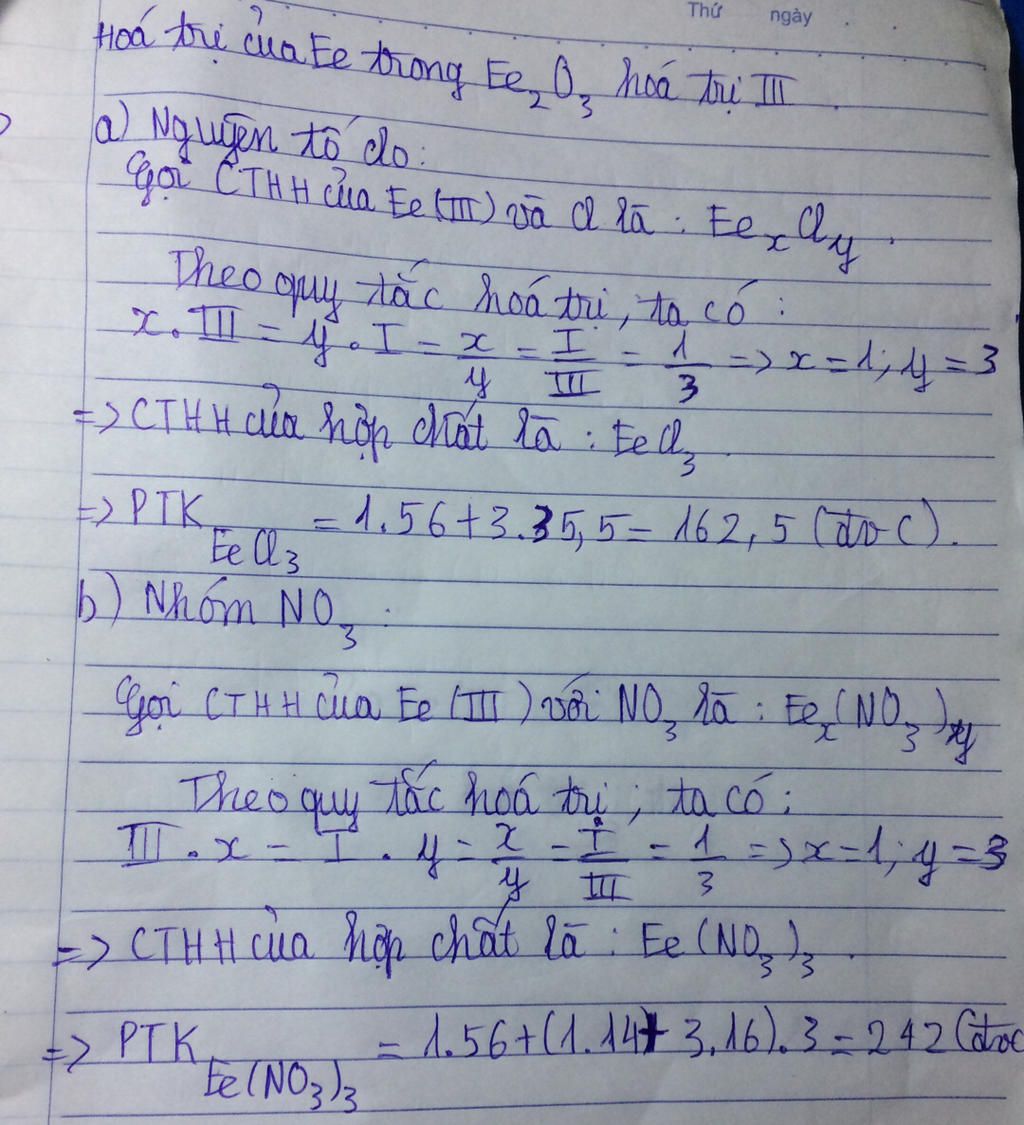 Thứ ngày
Hoá trị của Fe trong Fe₂O₃ hoá trị III.
a) Nguyên tố clo:
Gọi CTHH của Fe (III) và Cl là : FeₓClᵧ.
Theo quy tắc hoá trị, ta có :
x . III = y . I = x/y = I/III = 1/3 => x = 1; y = 3
=> CTHH của hợp chất là : FeCl₃.
=> PTK FeCl₃ = 1.56 + 3.35,5 = 162,5 (đvC).
b) Nhóm NO₃ :
Gọi CTHH của Fe (III) với NO₃ là : Feₓ(NO₃)ᵧ
Theo quy tắc hoá trị ; ta có :
III . x = I . y = x/y = I/III = 1/3 => x = 1; y = 3
=> CTHH của hợp chất là : Fe(NO₃)₃.
=> PTK Fe(NO₃)₃ = 1.56 + (1.14 + 3.16).3 = 242 (đvC